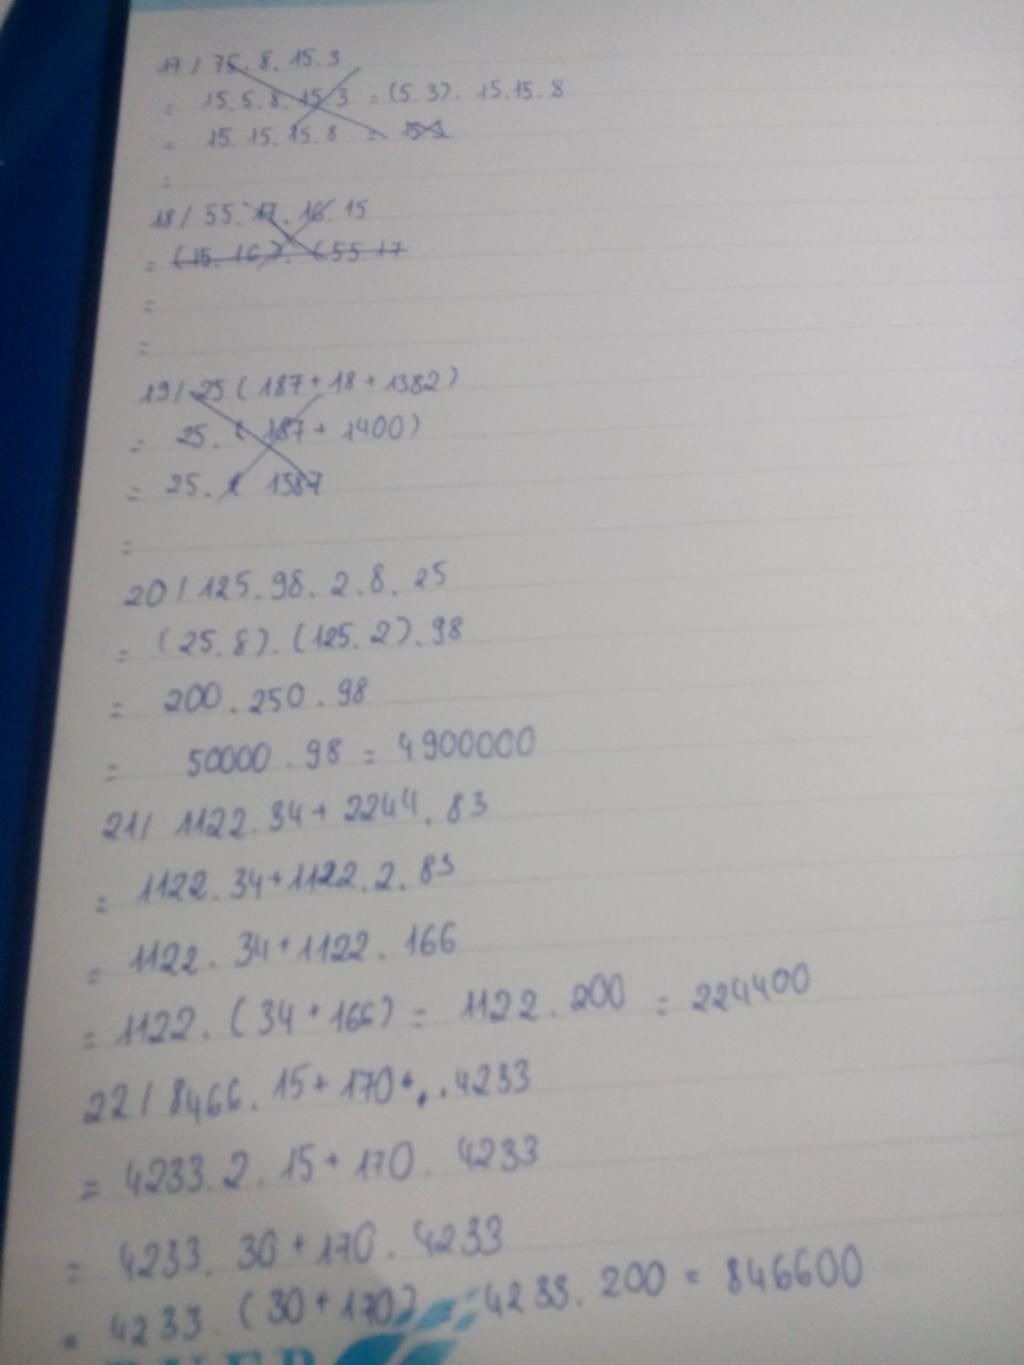 17/ 75. 8. 15. 3
= 15. 5. 8. 15. 3 = (5. 3). 15. 15. 8
= 15. 15. 15. 8 =
=
18/ 55. 17. 16. 15
= (15. 16). (55 17
=
=
19/ 25 ( 187 + 18 + 1382 )
= 25. ( 187 + 1400 )
= 25. 1587
=
20/ 125. 98. 2. 8. 25
= (25. 8). (125. 2). 98
= 200. 250. 98
= 50000. 98 = 4900000
21/ 1122. 34 + 2244. 83
= 1122. 34 + 1122. 2. 83
= 1122. 34 + 1122. 166
= 1122. (34 + 166) = 1122. 200 = 224400
22/ 8466. 15 + 170 . 4233
= 4233. 2. 15 + 170. 4233
= 4233. 30 + 170. 4233
= 4233. (30 + 170) = 4233. 200 = 846600